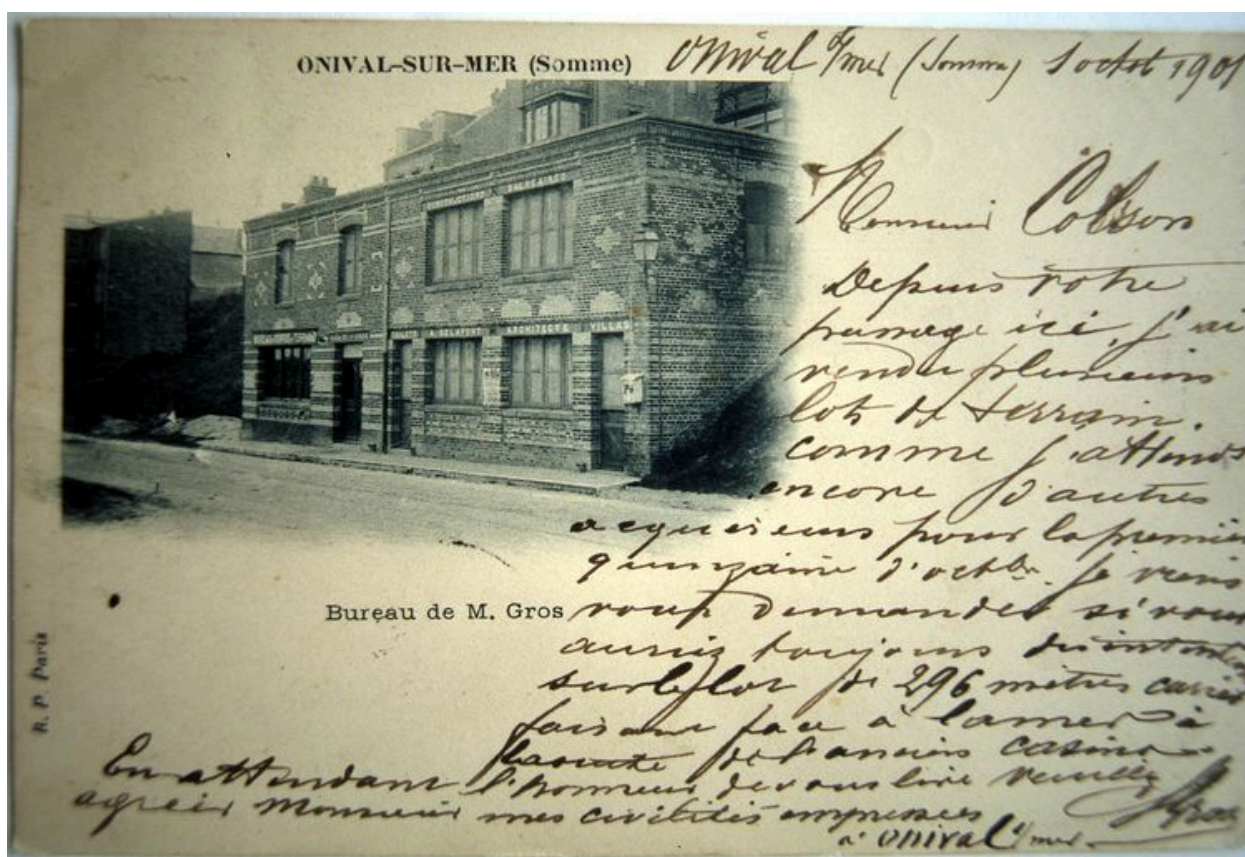 ONIVAL-SUR-MER (Somme)
Onival s/mer (Somme) 1 octob 190
Monsieur Colson
Depuis votre
passage ici, j'ai
vendu plusieurs
lots de terrain.
comme j'attends
encore d'autres
acquéreurs pour la première
quinzaine d'octbre je viens
vous demander si vous
auriez toujours des intentions
sur le lot de 296 mètres carrés
faisant face à la mer à
la suite de l'ancien casino
En attendant l'honneur de vous lire veuillez
agréer Monsieur mes civilités empressées
Gros
à Onival s/mer
Bureau de M. Gros
R. P. Paris
A. DELAFONT ARCHITECTE VILLAS